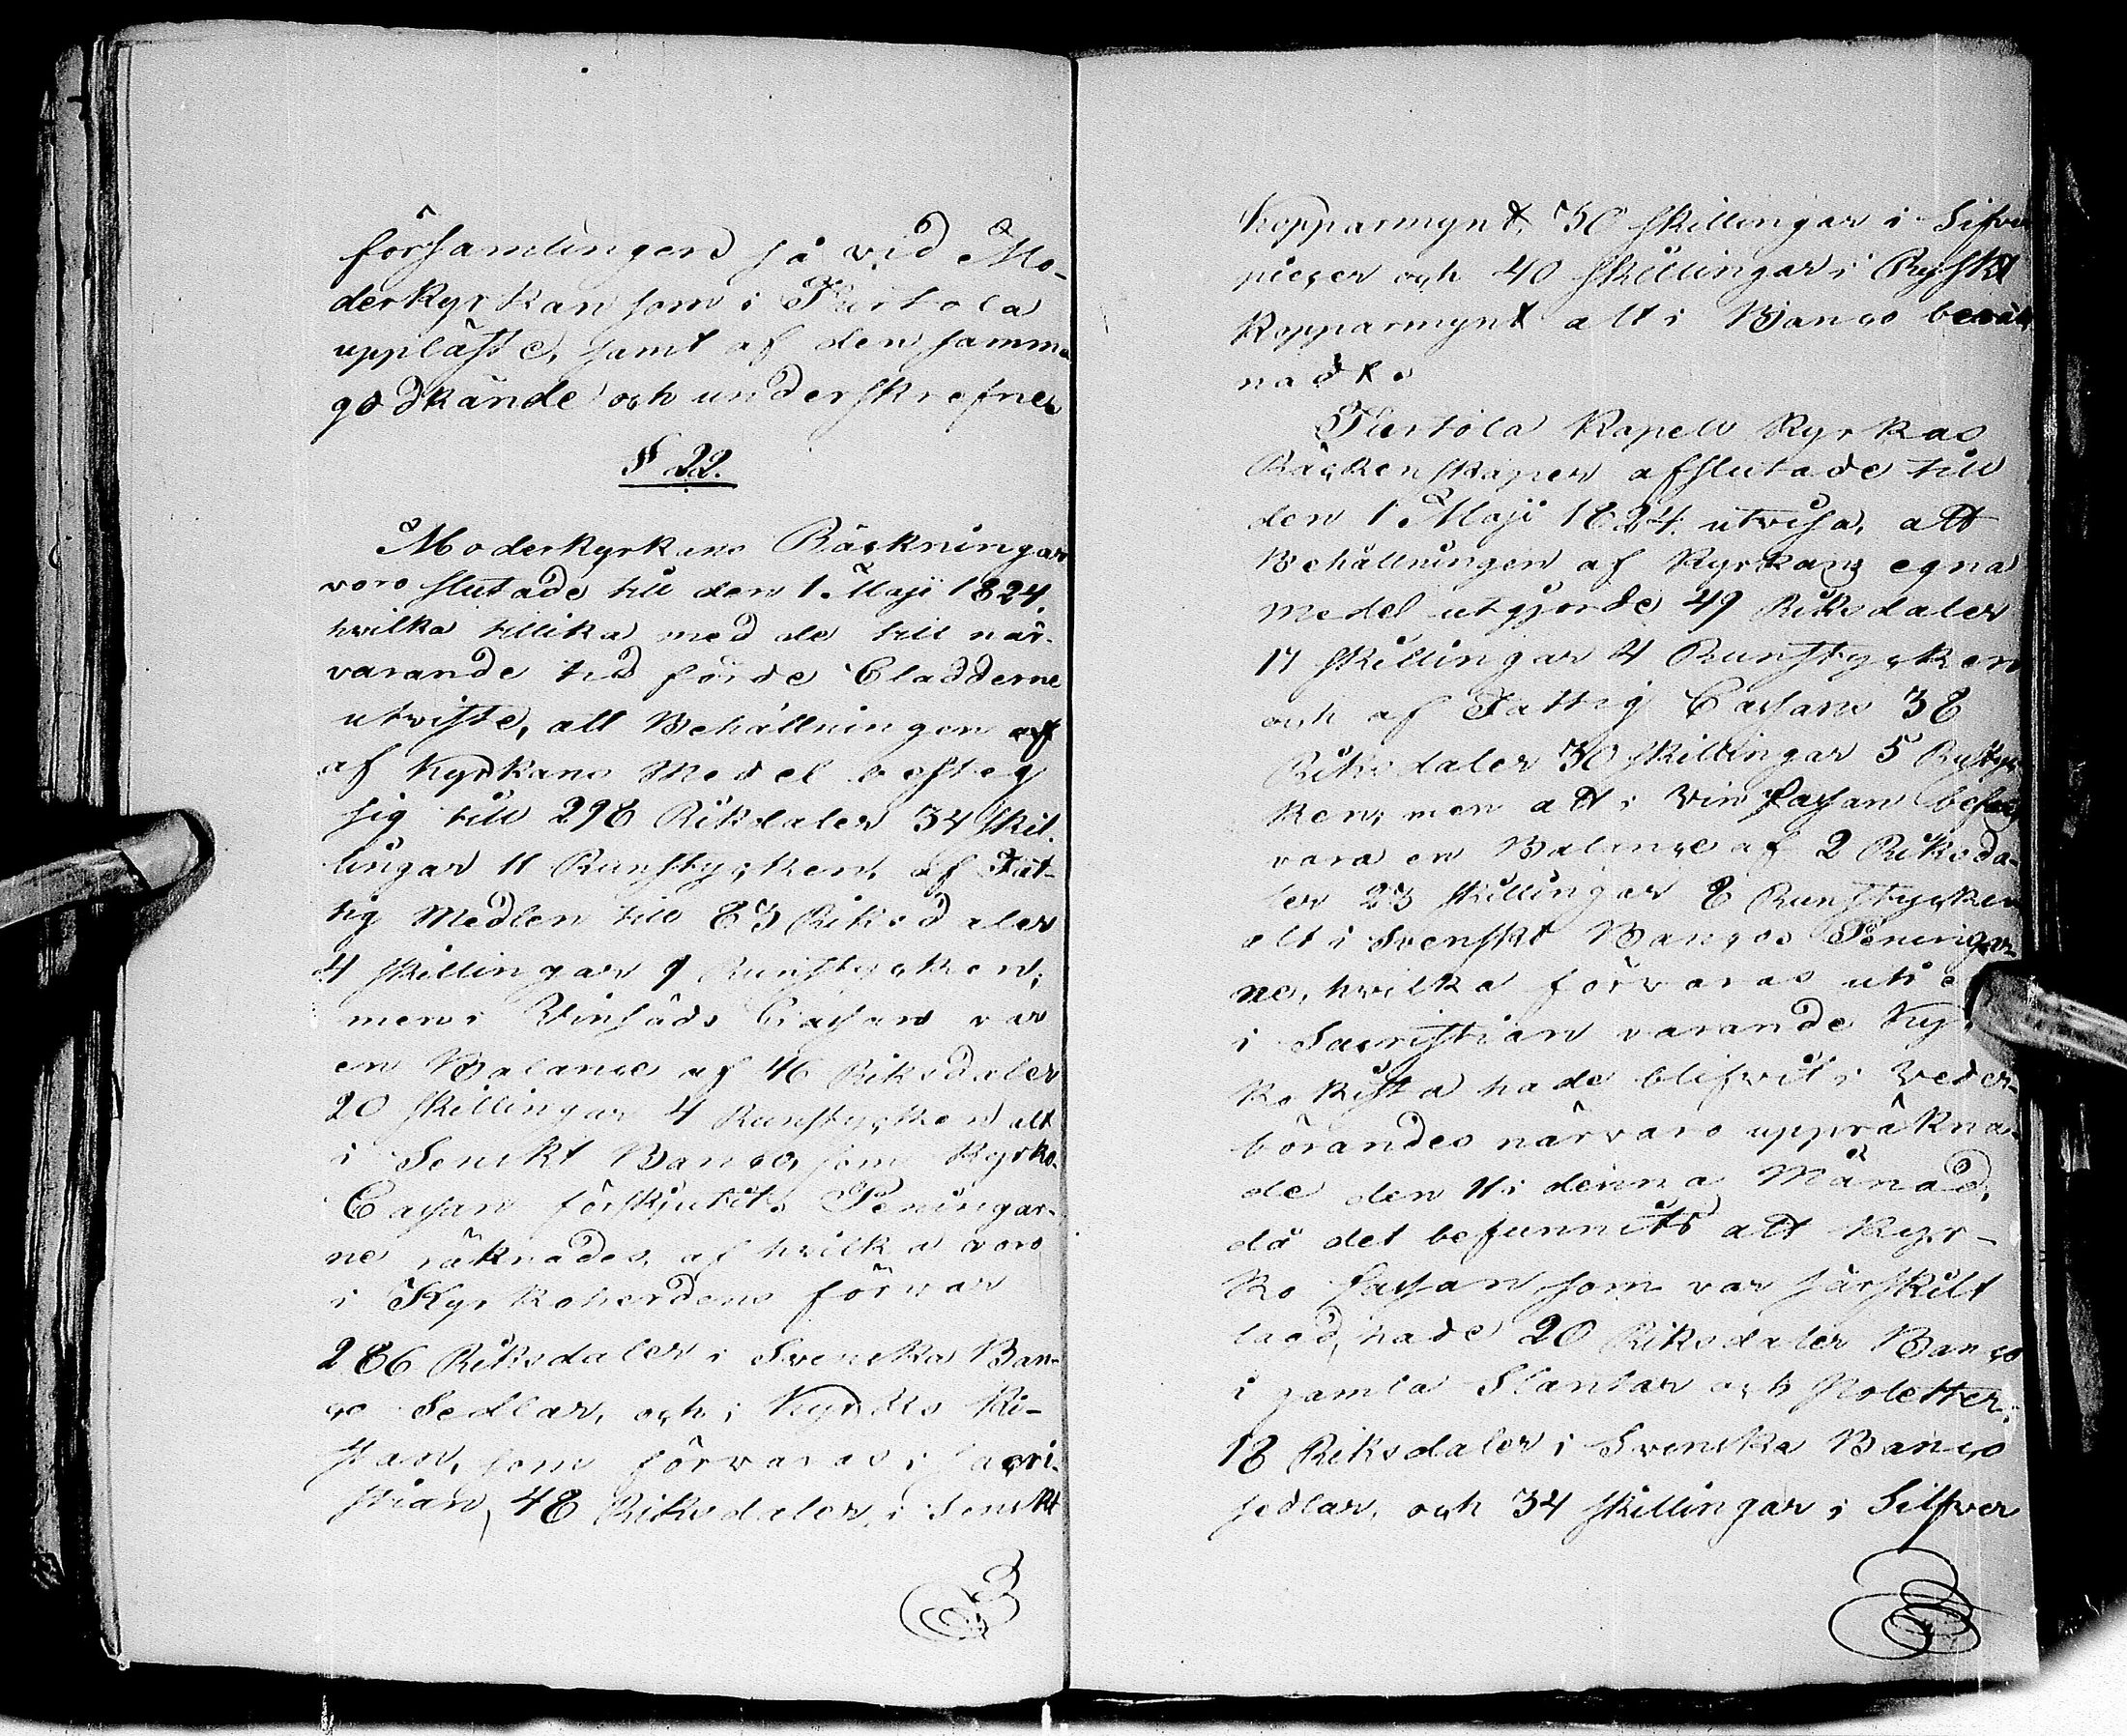 församlingen så vid Mo-
derkyrkan som i Turtola
uppläste, samt af den samma
godkände och underskrefne
§ 22.
Moderkyrkans Räckningar
voro slutade till den 1. Maji 1824,
hvilka tillika med de till när-
varande tid förde Cladderne
utviste, att Behållningen
af Kyrkans Medel besteg
sig till 298 Rikdaler 34 Skil-
lingar 11 Runstycken, af Fat-
tig Medlen till 83 Riksdaler
4 skillingar 9 Runstycken;
men i Vinsäds Cassan var
en Balance af 46 Riksdaler
20 skillingar 4 Runstycken alt
i Senskt Banco, som Kyrko-
Cassan förskjutit. Peningar-
ne räknades, af hvilka voro
i Kyrkoherdens förvar
286 Riksdaler i Svenska Ban-
co Sedlar, och i Kyrkis Ki-
stan, som förvaras i Sacri-
stian, 48 Riksdaler, i Senskt
Kopparmynt, 30 skillingar i Silfver
piecer och 40 skillingar i Ryskt
Kopparmynt alt i Banco beräk
nadt.
Turtola Kapell Kyrkas
Räckenskaper afslutade till
den 1 Maji 1824. utvisa, att
Behållningen af Kyrkans egna
medel utgjorde 49 Riksdaler
17 skillingar 4 Runstycken
och af Fattig Cassans 38
Riksdaler 30 skillingar 5 Rsty
ken; men att i Vin Cassan befans
vara en Balance af 2 Riksda-
ler 23 skillingar 8 Runstycken
alt i Svenskt Banco. Peningar-
ne, hvilka förvaras uti e
i Sacristian varande Kyr
ko kista hade blifvit i Veder-
börandes närvaro uppräkna-
de den 11 i denna Månad,
då det befunnits att Kyr-
ko Cassan som var särskilt
lagd, hade 20 Riksdaler Banco
i gamla Slantar och Poletter,
18 Riksdaler i Svenska Banco
sedlar, och 34 skillingar i Silfver